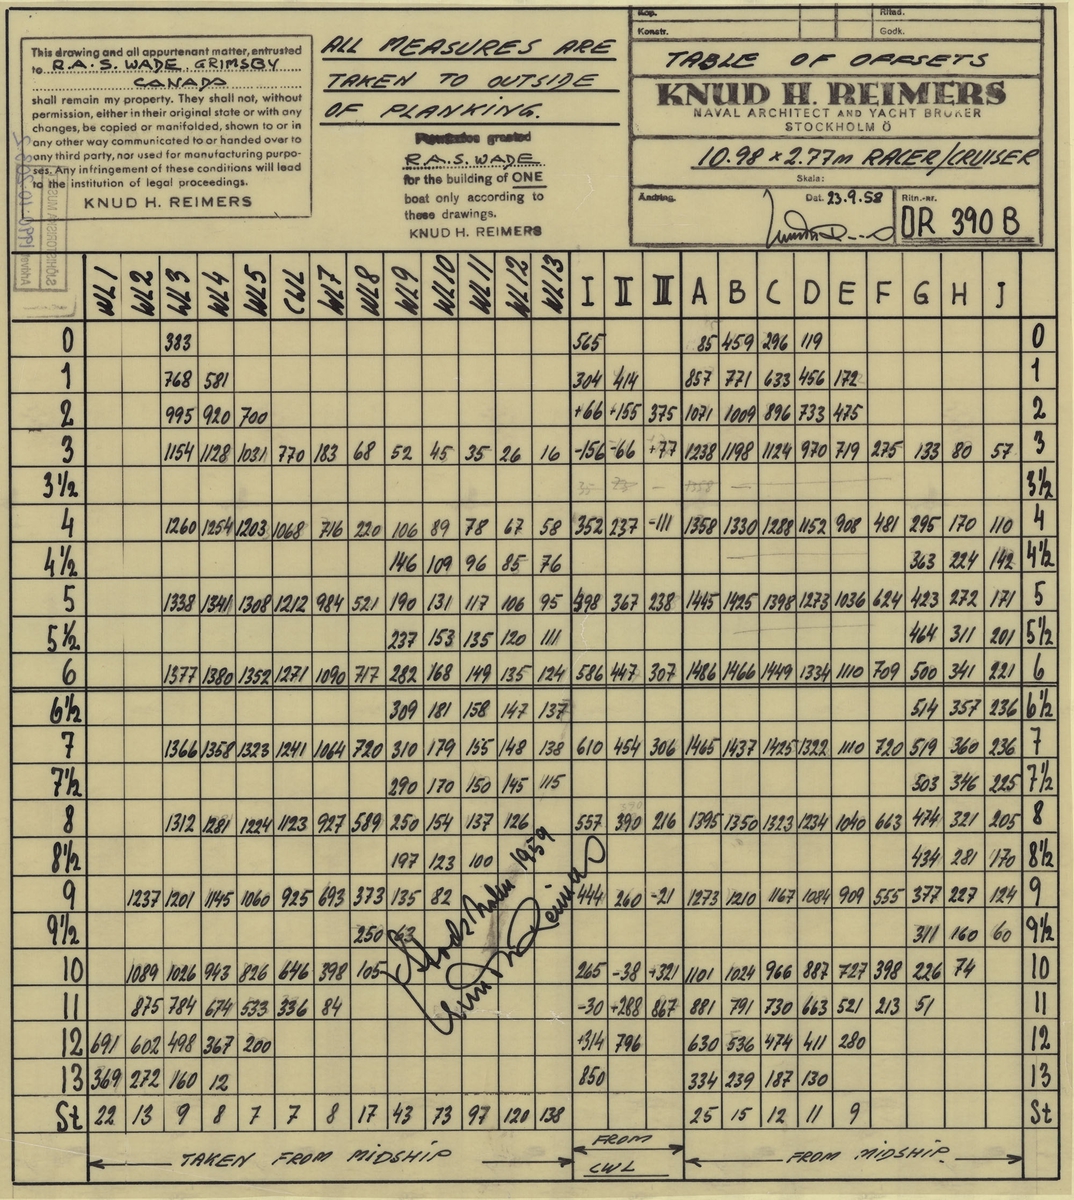 This drawing and all appurtenant matter, entrusted
to R.A.S. WADE, GRIMSBY
CANADA
shall remain my property. They shall not, without
permission, either in their original state or with any
changes, be copied or manifolded, shown to or in
any other way communicated to or handed over to
any third party, nor used for manufacturing purpo-
ses. Any infringement of these conditions will lead
to the institution of legal proceedings.
KNUD H. REIMERS
ALL MEASURES ARE
TAKEN TO OUTSIDE
OF PLANKING.
Permission granted
R.A.S. WADE
for the building of ONE
boat only according to
these drawings.
KNUD H. REIMERS
Kop. Ritad.
Konstr. Godk.
TABLE OF OFFSETS
KNUD H. REIMERS
NAVAL ARCHITECT AND YACHT BROKER
STOCKHOLM Ö
10.98 × 2.77m RACER/CRUISER
Skala:
Ändring. Dat. 23.9.58 Ritn.-nr.
DR 390 B
WL1 WL2 WL3 WL4 WL5 CWL WL7 WL8 WL9 WL10 WL11 WL12 WL13 I II III A B C D E F G H J
0 383 565 85 459 296 119 0
1 768 581 304 414 857 771 633 456 172 1
2 995 920 700 +66 +155 375 1071 1009 896 733 475 2
3 1154 1128 1031 770 183 68 52 45 35 26 16 -156 -66 +77 1238 1198 1124 970 719 275 133 80 57 3
3½ 3½
4 1260 1254 1203 1068 716 220 106 89 78 67 58 352 237 -111 1358 1330 1288 1152 908 481 295 170 110 4
4½ 146 109 96 85 76 363 224 142 4½
5 1338 1341 1308 1212 984 521 190 131 117 106 95 498 367 238 1445 1425 1398 1273 1036 624 423 272 171 5
5½ 237 153 135 120 111 464 311 201 5½
6 1377 1380 1352 1271 1090 717 282 168 149 135 124 586 447 307 1486 1466 1449 1334 1110 709 500 341 221 6
6½ 309 181 158 147 137 514 357 236 6½
7 1366 1358 1323 1241 1064 720 310 179 155 148 138 610 454 306 1465 1437 1425 1322 1110 720 519 360 236 7
7½ 290 170 150 145 115 503 346 225 7½
8 1312 1281 1224 1123 927 589 250 154 137 126 557 390 216 1395 1350 1323 1234 1040 663 474 321 205 8
8½ 197 123 100 434 281 170 8½
9 1237 1201 1145 1060 925 693 373 135 82 444 260 -21 1273 1210 1167 1084 909 555 377 227 124 9
9½ 250 63 311 160 60 9½
10 1089 1026 943 826 646 398 105 265 -38 +321 1101 1024 966 887 727 398 226 74 10
11 875 784 674 533 336 84 -30 +288 867 881 791 730 663 521 213 51 11
12 691 602 498 367 200 +314 796 630 536 474 411 280 12
13 369 272 160 12 850 334 239 187 130 13
St 22 13 9 8 7 7 8 17 43 73 97 120 138 25 15 12 11 9 St
Stockholm 1959
Knud H Reimers
TAKEN FROM MIDSHIP FROM CWL FROM MIDSHIP.